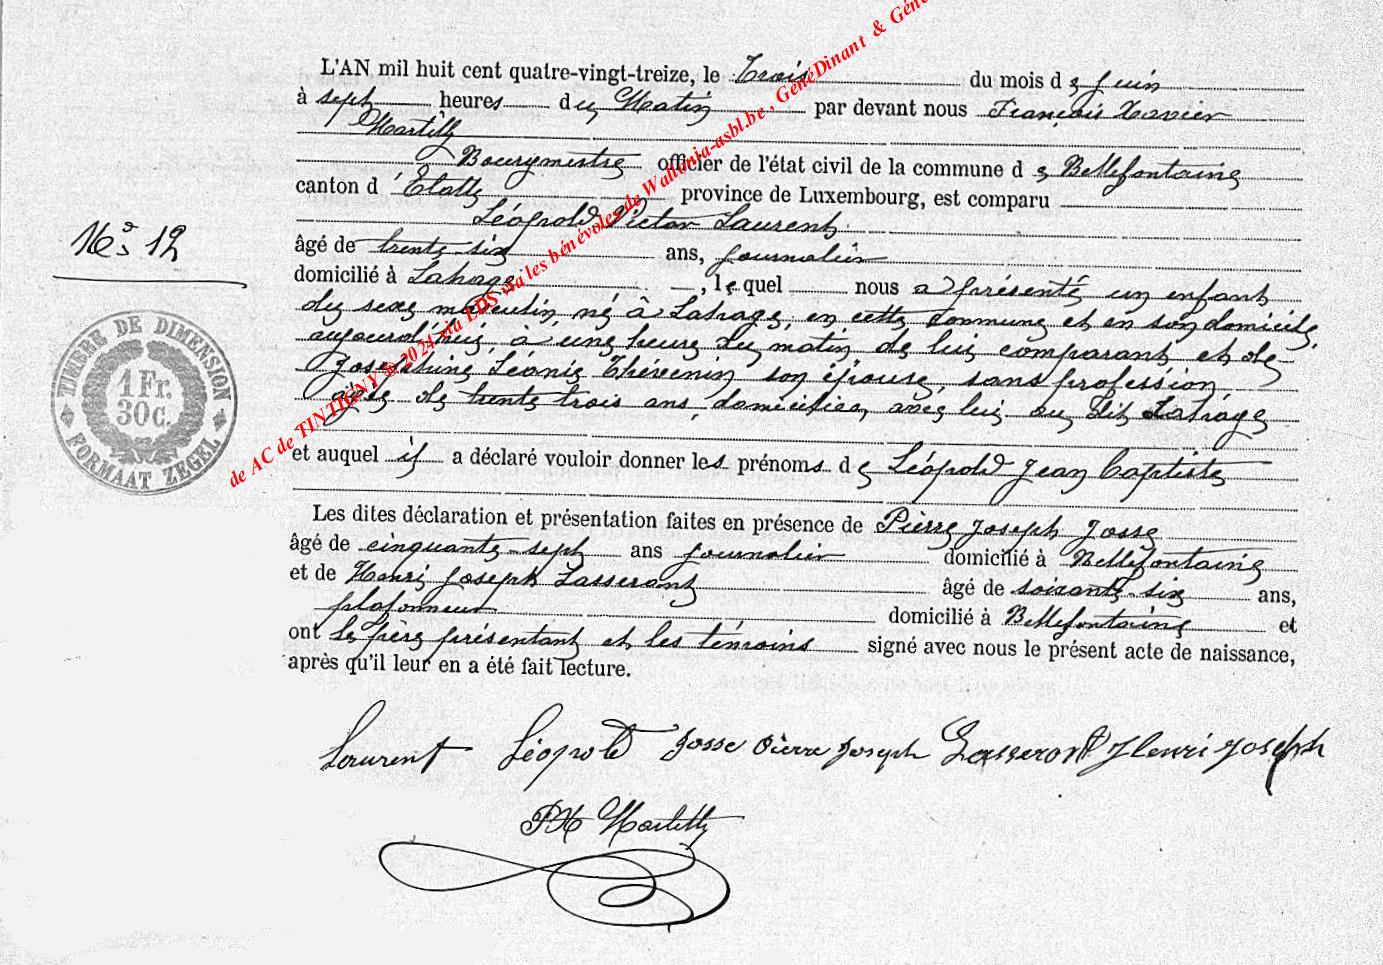 L'AN mil huit cent quatre-vingt-treize, le Trois du mois de Juin
à sept heures du Matin par devant nous François Xavier
Martilly
Bourgmestre officier de l'état civil de la commune de Bellefontaine
canton d'Etalle province de Luxembourg, est comparu
Léopold Victor Laurent
N° 12
âgé de trente-six ans, journalier
domicilié à Lahage, lequel nous a présenté un enfant
du sexe masculin né à Lahage, en cette commune et en son domicile,
aujourd'hui, à une heure du matin, de lui comparant et de
Joséphine Léonie Thévenin son épouse, sans profession
âgée de trente trois ans, domiciliée avec lui au dit Lahage
et auquel il a déclaré vouloir donner les prénoms de Léopold Jean Baptiste
Les dites déclaration et présentation faites en présence de Pierre Joseph Josse
âgé de cinquante-sept ans journalier domicilié à Bellefontaine
et de Henri Joseph Lasseront âgé de soixante-six ans,
plafonneur domicilié à Bellefontaine et
ont le père présentant et les témoins signé avec nous le présent acte de naissance,
après qu'il leur en a été fait lecture.
Laurent Léopold Josse Pierre Joseph Lasseront Henri Joseph
FX Martilly
TIMBRE DE DIMENSION
1 Fr.
30c.
FORMAAT ZEGEL
de AC de TINTIGNY & 2024 via EDS via les bénévoles de Wallonia-asbl.be , GénéDinant & Géné